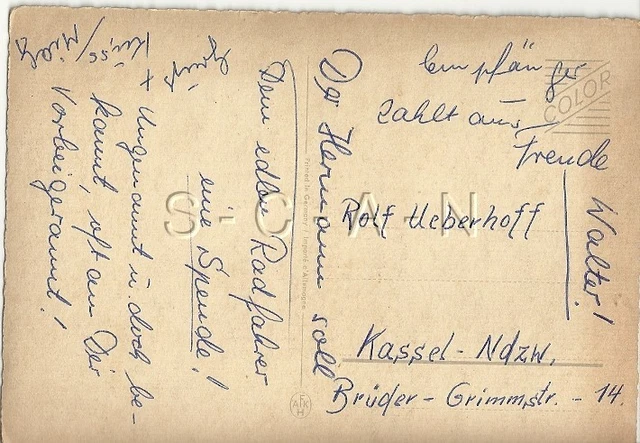 Dem edlen Radfahrer
eine Spende!
Ungenannt u. doch be-
kannt, oft an Dir
Vorbeigerannt!
Gruß
+
Kuss
Der Hermann soll
Empfänger
zahlt aus
Freude
Walter!
COLOR
Rolf Ueberhoff
Kassel - Ndzw.
Brüder - Grimmstr. - 14.
Printed in Germany / Imprimé d'Allemagne
S-C-A-N